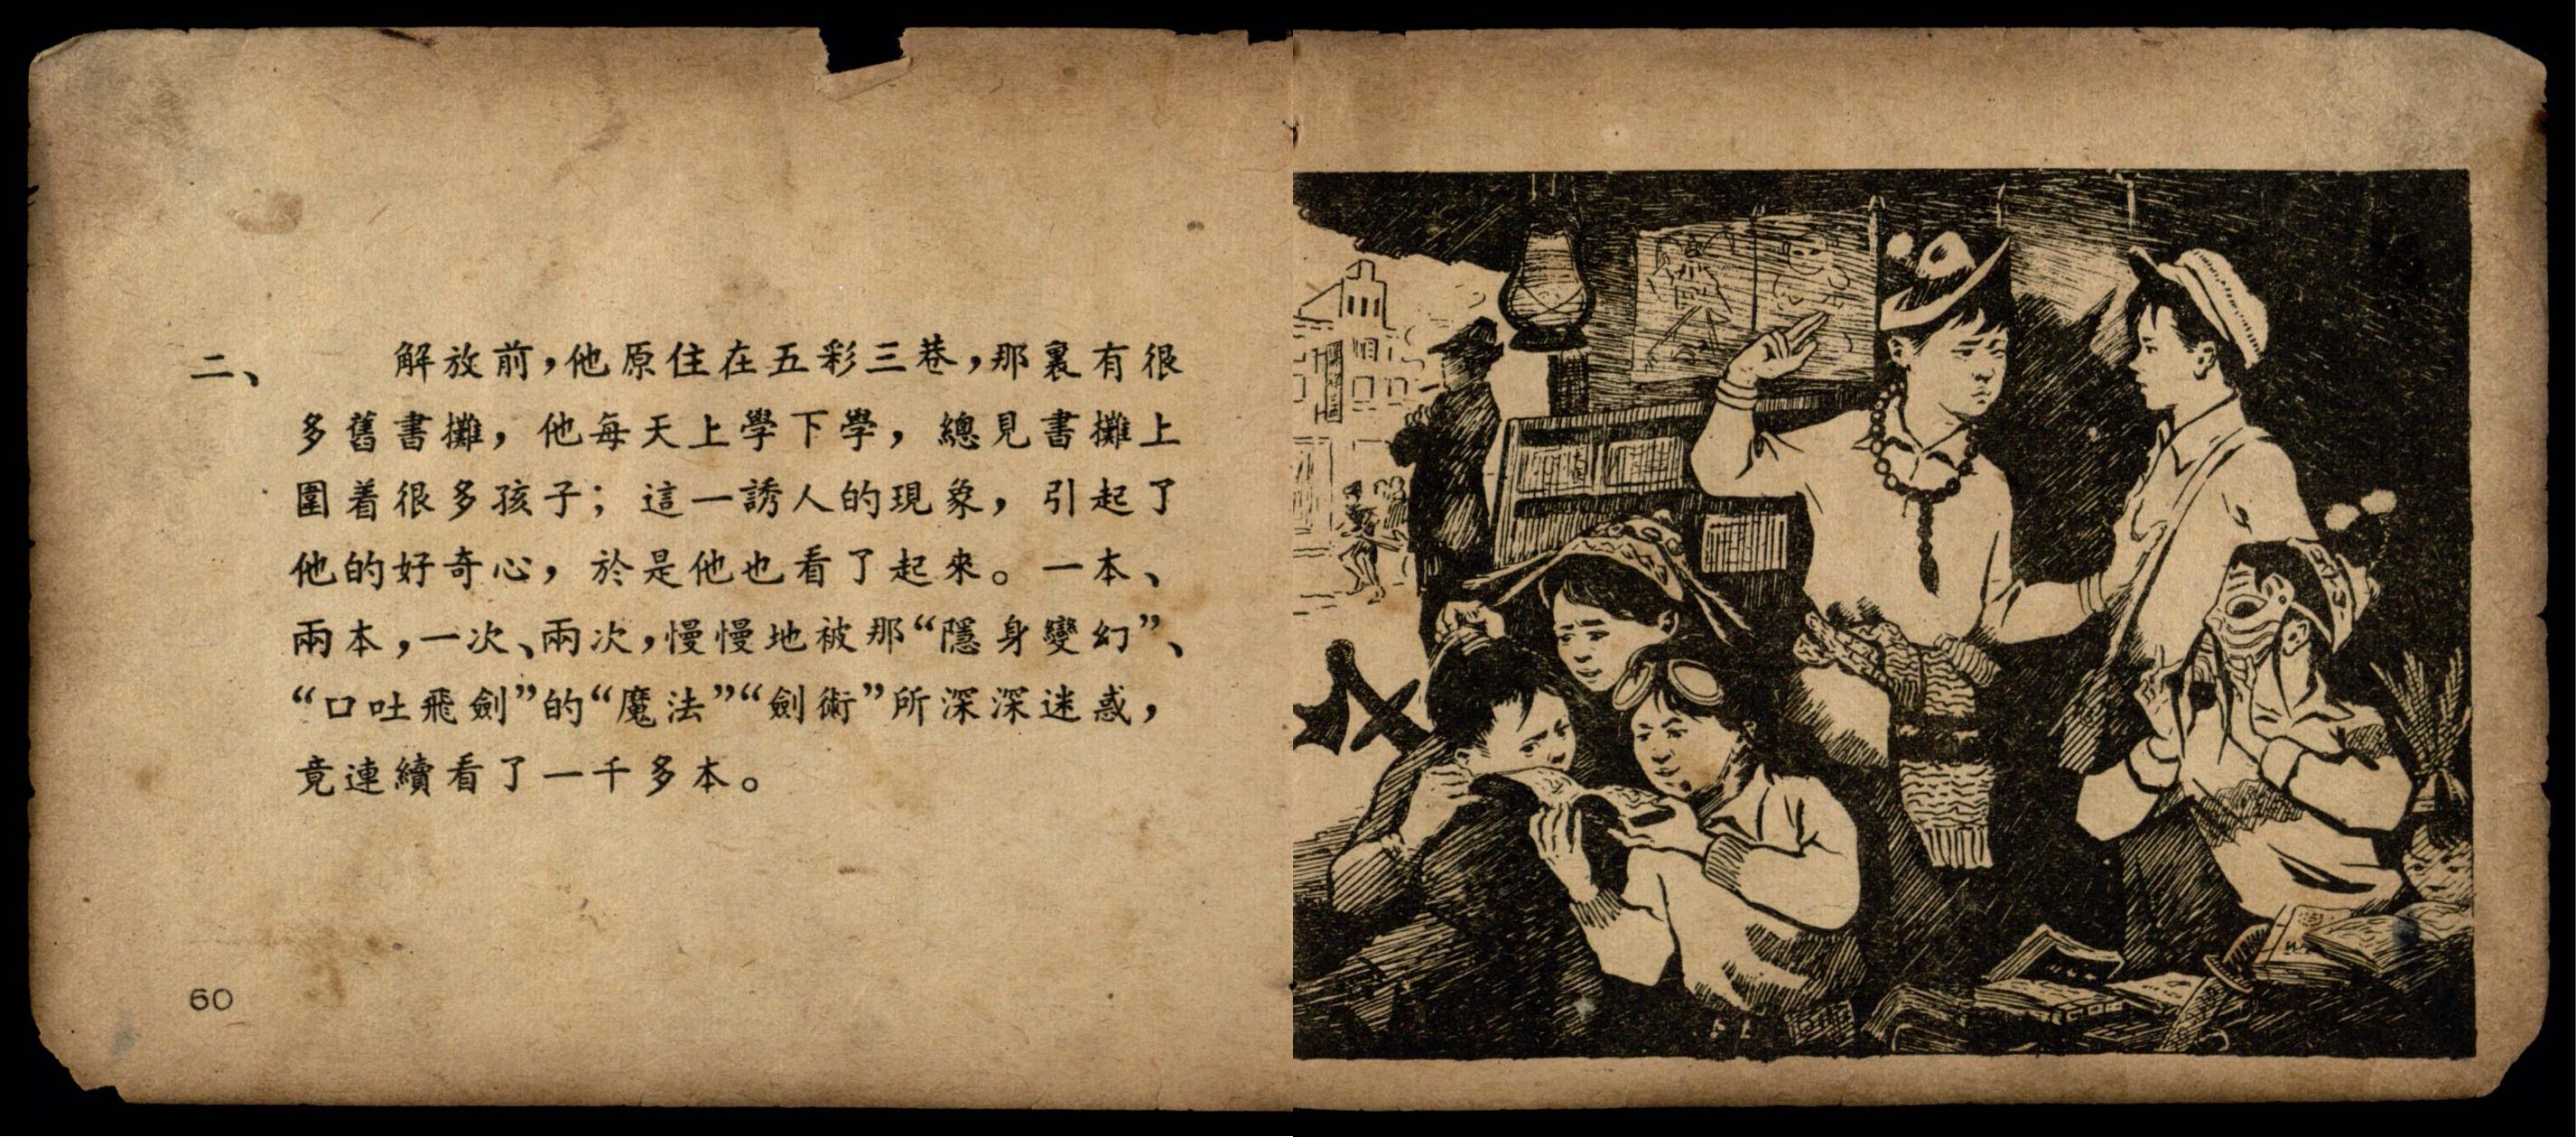 二、 解放前，他原住在五彩三巷，那裏有很
多舊書攤，他每天上學下學，總見書攤上
圍着很多孩子；這一誘人的現象，引起了
他的好奇心，於是他也看了起來。一本、
兩本，一次、兩次，慢慢地被那“隱身變幻”、
“口吐飛劍”的“魔法”“劍術”所深深迷惑，
竟連續看了一千多本。
60